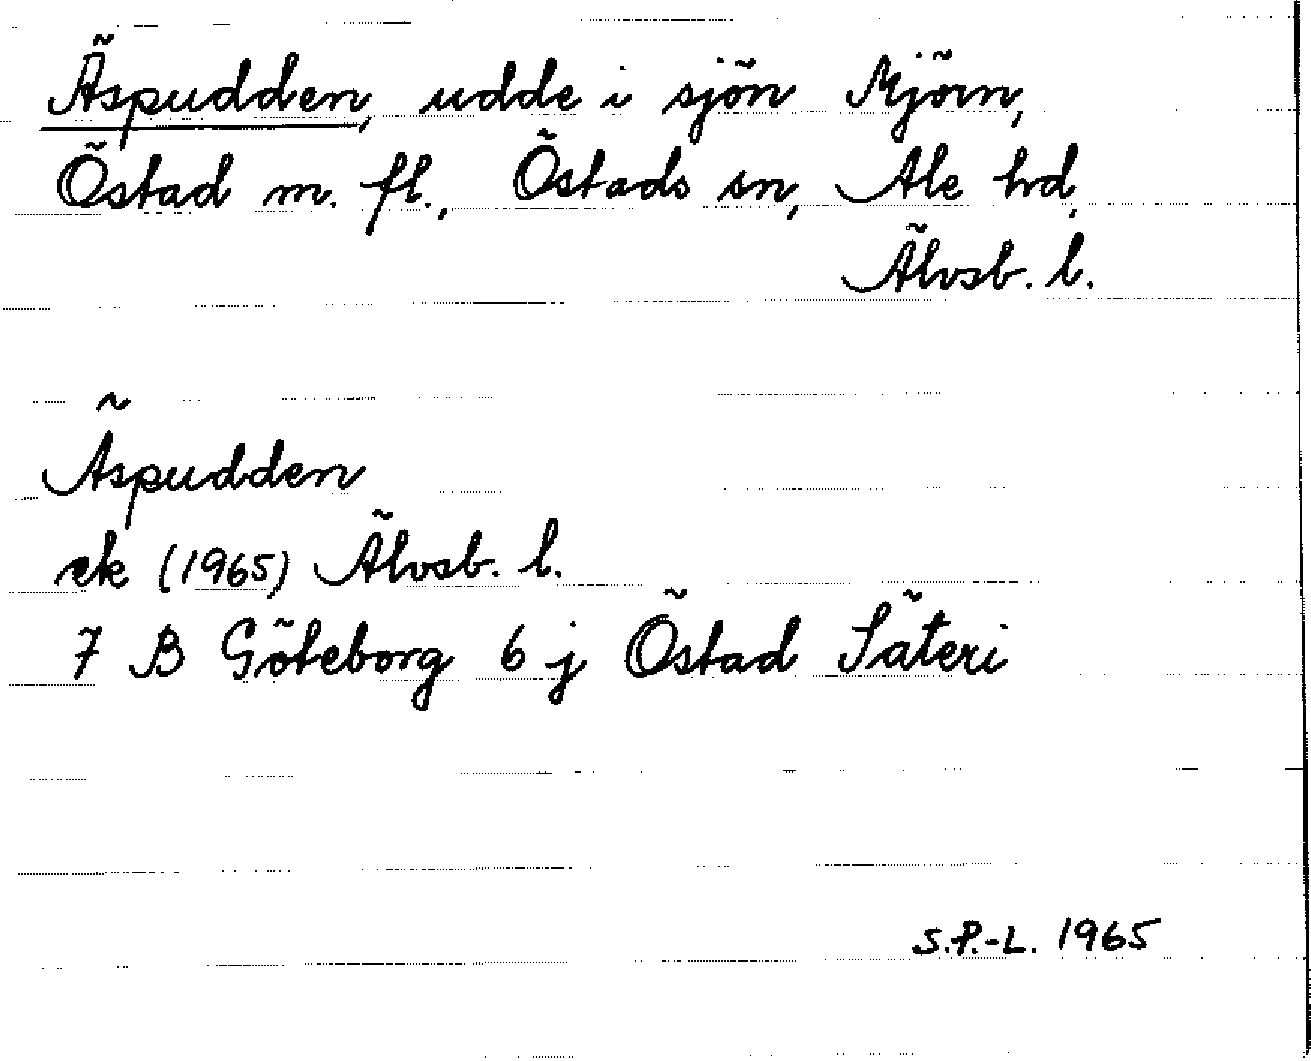 Äspudden, udde i sjön Mjörn,
Östad m. fl., Östads sn, Ale hd,
Älvsb. l.
Äspudden
ek (1965) Älvsb. l.
7 B Göteborg 6 j Östad Säteri
S.P.-L. 1965